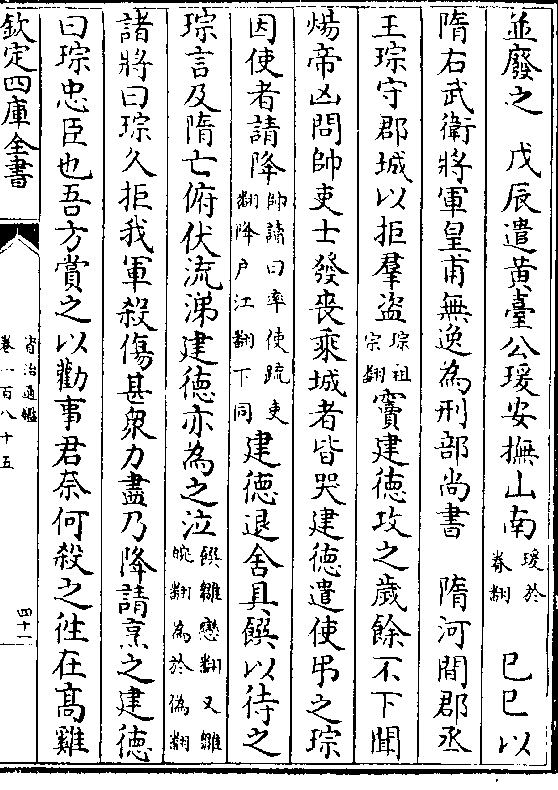 並廢之　戊辰遣黄臺公瑗安撫山南瑗於眷翻　己巳以
隋右武衛將軍皇甫無逸為刑部尚書　隋河間郡丞
王琮守郡城以拒羣盗琮祖宗翻竇建德攻之歲餘不下聞
煬帝凶問帥吏士發喪乘城者皆哭建德遣使弔之琮
因使者請降帥讀曰率使疏吏翻降户江翻下同建德退舍具饌以待之
琮言及隋亡俯伏流涕建德亦為之泣饌雛戀翻又雛晥翻為於偽翻
諸將曰琮久拒我軍殺傷甚衆力盡乃降請烹之建德
曰琮忠臣也吾方賞之以勸事君奈何殺之徃在高雞
欽定四庫全書
資治通鑑
卷一百八十五
四十一